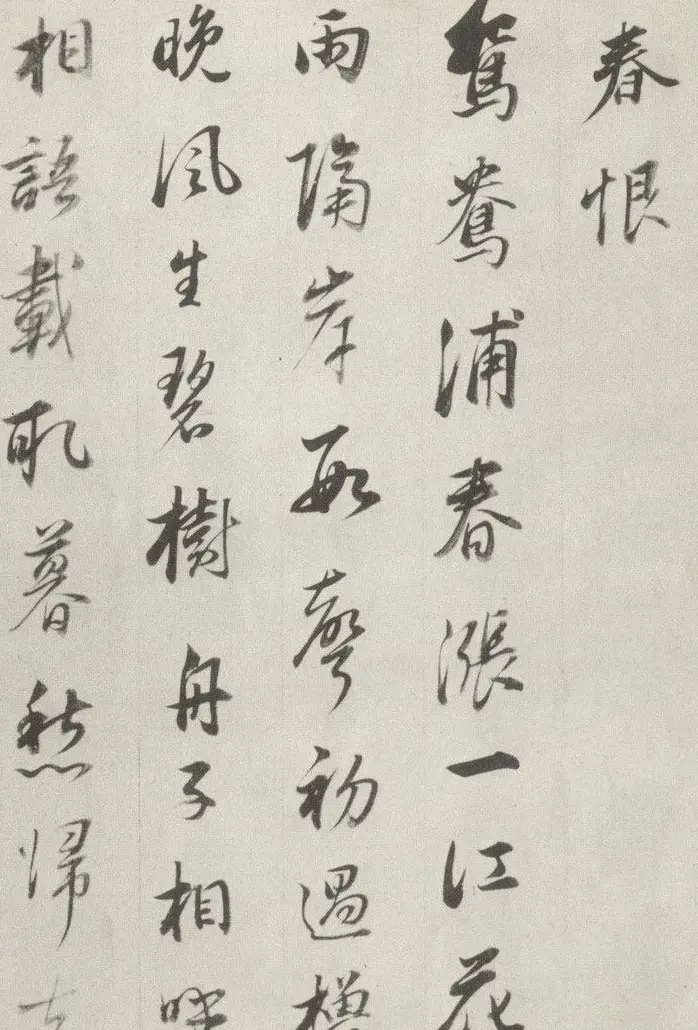 春恨
鴛鴦浦春漲一江花
雨隔岸數聲初過櫓
晚風生碧樹舟子相呼
相語載取暮愁歸去